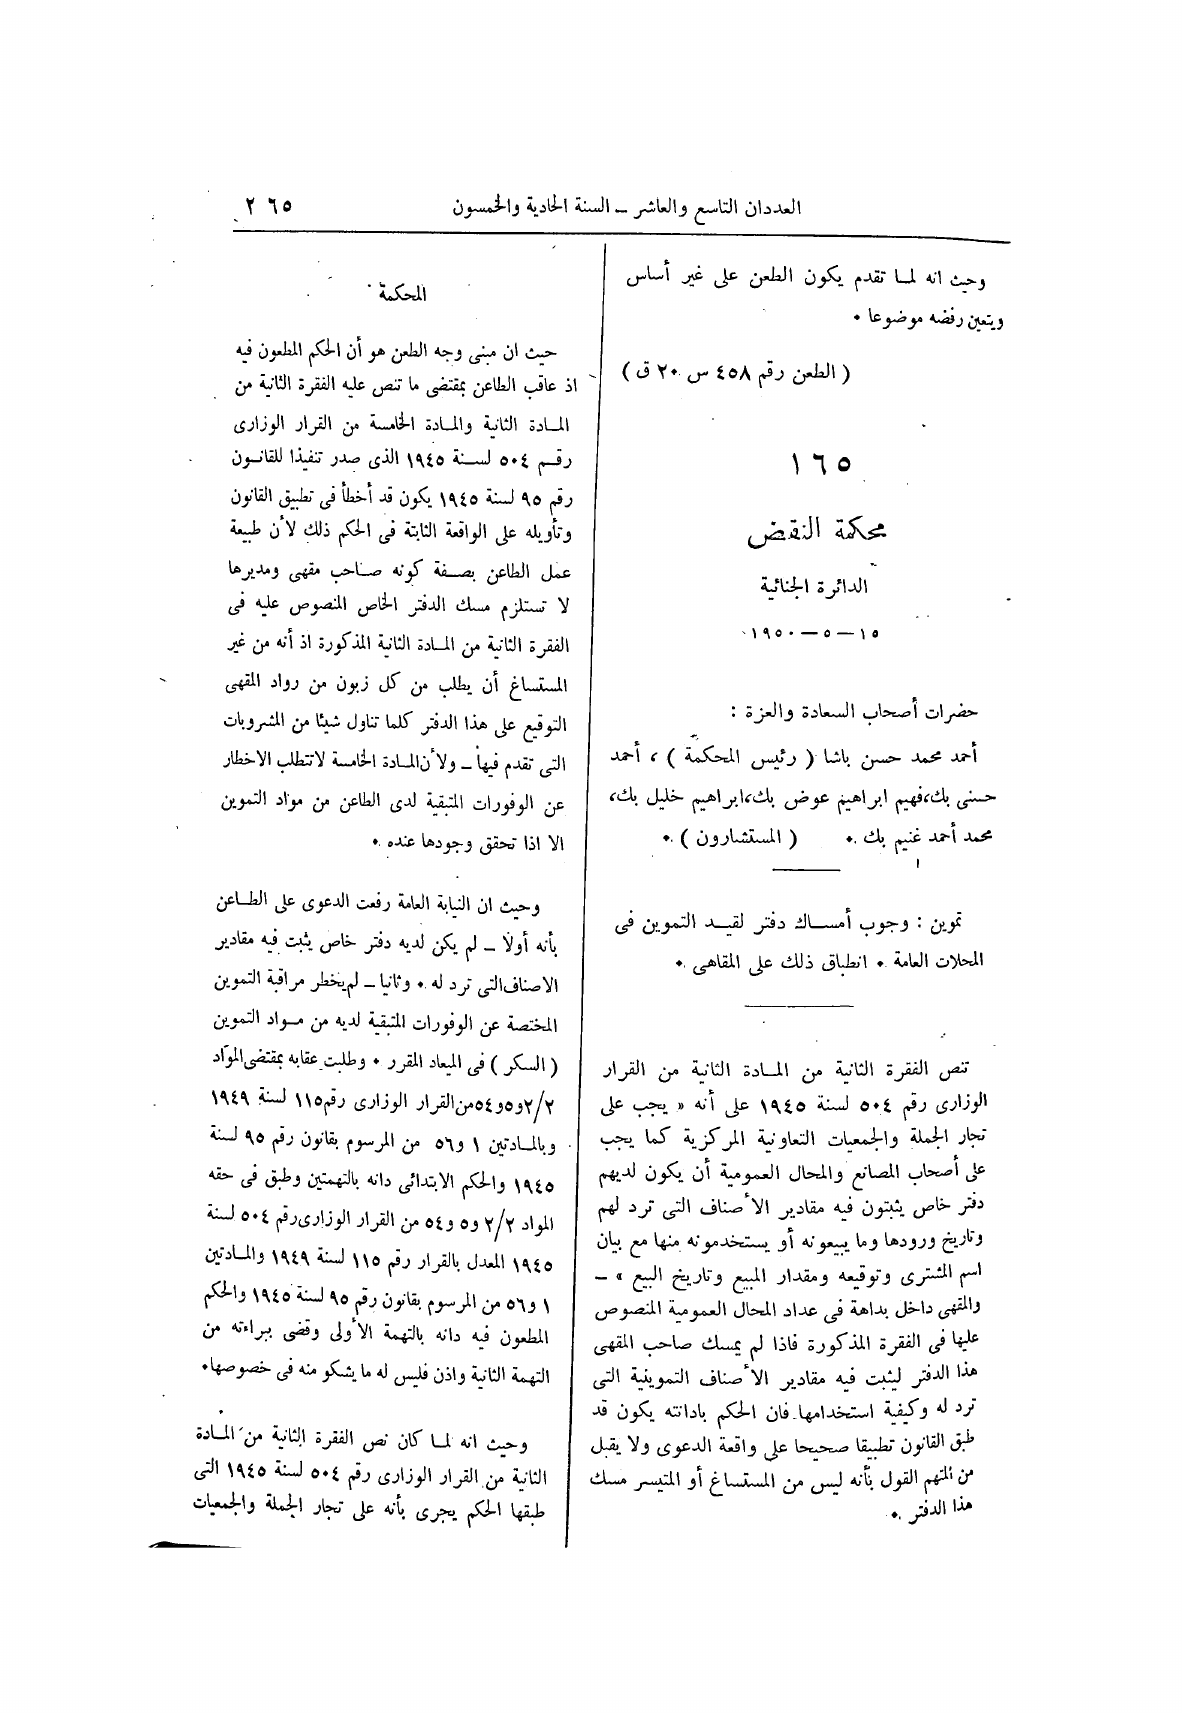 العددان التاسع والعاشر ــ السنة الحادية والخمسون
٢٦٥
وحيث انه لمــا تقدم يكون الطعن على غير أساس
ويتعين رفضه موضوعا ٠
( الطعن رقم ٤٥٨ س ٢٠ ق )
١٦٥
محكمة النقض
الدائرة الجنائية
١٥ ــ ٥ ــ ١٩٥٠
حضرات أصحاب السعادة والعزة :
أحمد محمد حسن باشا ( رئيس المحكمة ) ، أحمد
حسنى بك،فهيم ابراهيم عوض بك،ابراهيم خليل بك،
محمد أحمد غنيم بك ٠ ( المستشارون ) ٠
تموين : وجوب أمســاك دفتر لقيــد التموين فى
المحلات العامة ٠ انطباق ذلك على المقاهى ٠
تنص الفقرة الثانية من المــادة الثانية من القرار
الوزارى رقم ٥٠٤ لسنة ١٩٤٥ على أنه « يجب على
تجار الجملة والجمعيات التعاونية المركزية كما يجب
على أصحاب المصانع والمحال العمومية أن يكون لديهم
دفتر خاص يثبتون فيه مقادير الأصناف التى ترد لهم
وتاريخ ورودها وما يبيعونه أو يستخدمونه منها مع بيان
اسم المشترى وتوقيعه ومقدار المبيع وتاريخ البيع » ــ
والمقهى داخل بداهة فى عداد المحال العمومية المنصوص
عليها فى الفقرة المذكورة فاذا لم يمسك صاحب المقهى
هذا الدفتر ليثبت فيه مقادير الأصناف التموينية التى
ترد له وكيفية استخدامها فان الحكم بادانته يكون قد
طبق القانون تطبيقا صحيحا على واقعة الدعوى ولا يقبل
من المتهم القول بأنه ليس من المستساغ أو المتيسر مسك
هذا الدفتر ٠
المحكمة
حيث ان مبنى وجه الطعن هو أن الحكم المطعون فيه
اذ عاقب الطاعن بمقتضى ما تنص عليه الفقرة الثانية من
المــادة الثانية والمــادة الخامسة من القرار الوزارى
رقــم ٥٠٤ لســنة ١٩٤٥ الذى صدر تنفيذا للقانــون
رقم ٩٥ لسنة ١٩٤٥ يكون قد أخطأ فى تطبيق القانون
وتأويله على الواقعة الثابتة فى الحكم ذلك لأن طبيعة
عمل الطاعن بصــفة كونه صــاحب مقهى ومديرها
لا تستلزم مسك الدفتر الخاص المنصوص عليه فى
الفقرة الثانية من المــادة الثانية المذكورة اذ أنه من غير
المستساغ أن يطلب من كل زبون من رواد المقهى
التوقيع على هذا الدفتر كلما تناول شيئا من المشروبات
التى تقدم فيها ــ ولأن المــادة الخامسة لا تتطلب الاخطار
عن الوفورات المتبقية لدى الطاعن من مواد التموين
الا اذا تحقق وجودها عنده ٠
وحيث ان النيابة العامة رفعت الدعوى على الطــاعن
بأنه أولا ــ لم يكن لديه دفتر خاص يثبت فيه مقادير
الاصناف التى ترد له ٠ وثانيا ــ لم يخطر مراقبة التموين
المختصة عن الوفورات المتبقية لديه من مــواد التموين
( السكر ) فى الميعاد المقرر ٠ وطلبت عقابه بمقتضى المواد
٢/٢ و٥ و٥٤ من القرار الوزارى رقم ١١٥ لسنة ١٩٤٩
وبالمــادتين ١ و٥٦ من المرسوم بقانون رقم ٩٥ لسنة
١٩٤٥ والحكم الابتدائى دانه بالتهمتين وطبق فى حقه
المواد ٢/٢ و٥ و٥٤ من القرار الوزارى رقم ٥٠٤ لسنة
١٩٤٥ المعدل بالقرار رقم ١١٥ لسنة ١٩٤٩ والمــادتين
١ و٥٦ من المرسوم بقانون رقم ٩٥ لسنة ١٩٤٥ والحكم
المطعون فيه دانه بالتهمة الأولى وقضى ببراءته من
التهمة الثانية واذن فليس له ما يشكو منه فى خصوصها٠
وحيث انه لمــا كان نص الفقرة الثانية من المــادة
الثانية من القرار الوزارى رقم ٥٠٤ لسنة ١٩٤٥ التى
طبقها الحكم يجرى بأنه على تجار الجملة والجمعيات